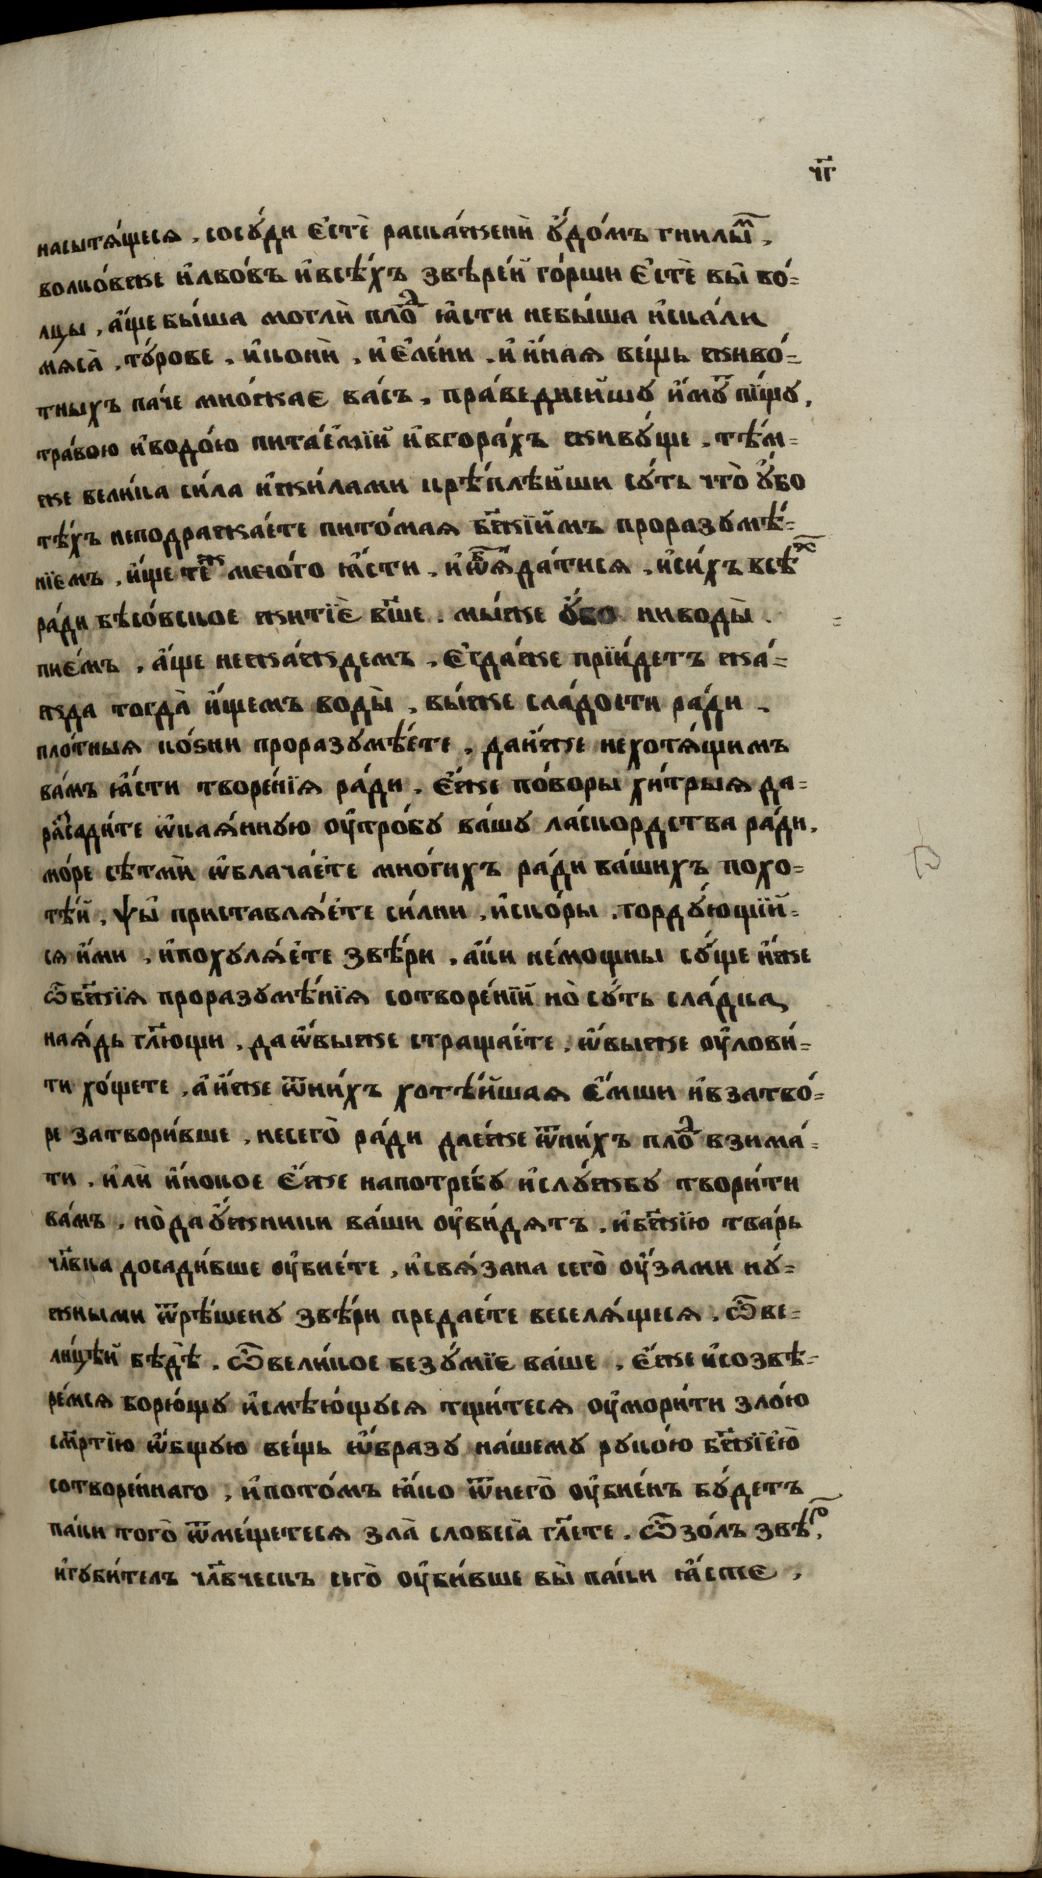 чг҃
насытѧ́щесѧ . сосꙋ́ди є҆стѐ раска́жени ᲂу҆до́мъ гнилы҃м ,
волко́вже и҆лво́въ и҆всѣ́хъ ѕвѣре́й го́рши є҆стѐ вы̀ во́-
лцы , а҆́ще бы́ша моглѝ плоⷣ ꙗ҆́сти небы́ша и҆ска́ли
мѧса̀ , тꙋ́рове . и҆конѝ , и҆є҆ле́ни . и҆ и҆́наѧ ве́щь живо́-
тныхъ па́че мно́жає ва́съ , пра́веднейшꙋ и҆́мꙋⷮ пи́щꙋ ,
траво́ю и҆водо́ю пита́еміи и҆вгора́хъ живꙋ́ще . тѣ́м-
же вели́ка си́ла и҆жи́лами крѣ́плѣйши сꙋ́ть что̀ ᲂу҆́бо
тѣ́хъ неподража́ете пито́маѧ бж҃їимъ проразꙋмѣ́-
нїемъ , и҆́ще теⷤ мсюго ꙗ҆́сти . и҆ѿꙗⷣдатисѧ . и҆си́хъ всѣⷯ
ра́ди бѣсо́вское житїѐ ва́ше . мы́же ᲂу҆́бо ниводы̀ .
пие́мъ , а҆́ще нежа́ждемъ . є҆гда́же прїи́детъ жа́-
жда тогда̀ и҆́щемъ воды̀ , вы́же сла́дости ра́ди .
пло́тныѧ ко́ѕни проразꙋмѣ́ете , даи҆́же нехотѧ́щимъ
ва́мъ ꙗ҆́сти творе́нїѧ ра́ди . є҆́же пово́ры хи́трыѧ да-
рѧсади́те ѡ҆каѧ́ннꙋю ᲂу҆тро́бꙋ ва́шꙋ ласкордства ра́ди .
мо́ре сѣтмѝ ѡ҆блача́ете мно́гихъ ра́ди ва́шихъ похо-
те́й , ѱы̀ приставлѧ́ете си́лни , и҆ско́ры . гордꙋ́ющїи-
сѧ и҆́ми , и҆похꙋлѧ́ете ѕвѣ́ри , а҆́ки немощны сꙋ́ще и҆́же
ѿбж҃їѧ проразꙋмѣ́нїѧ сотворе́нїи но̀ сꙋ́ть сла́дка
наꙗ́дь гл҃ющи , даѡ҆́выже страша́ете , ѡ҆́выже ᲂу҆лови́-
ти хо́щете , а҆ и҆́же ѿни́хъ хотѣ́йшаѧ є҆́мши и҆взатво́-
ре затвори́вше , несего̀ ра́ди дае́же ѿни́хъ плоⷣ взима́-
ти . и҆лѝ и҆́нокое є҆́же напотре́бꙋ и҆слꙋ́жбꙋ твори́ти
ва́мъ . но̀да ᲂу҆́жники ва́ши ᲂу҆ви́дѧтъ . и҆бж҃їю тва́рь
чл҃вка досади́вше ᲂу҆бие́те , и҆свѧ́зана сего̀ ᲂу҆́зами нꙋ́-
жными ѿрѣ́шенꙋ ѕвѣ́ри предае́те веселѧ́щесѧ . ѽве-
ли́цѣй бѣдѣ̀ . ѽвели́кое безꙋ́мїе ва́ше . є҆́же и҆созвѣ-
ре́мсѧ борю́щꙋ и҆смѣю́щꙋсѧ тщи́тесѧ ᲂу҆мори́ти зло́ю
см҃ртїю ѡ҆́бщꙋю ве́щь ѡ҆́бразꙋ на́шемꙋ рꙋко́ю бж҃їе́ю
сотворе́ннаго , и҆пото́мъ ꙗ҆́ко ѿнего̀ ᲂу҆бие́нъ бꙋ́детъ
па́ки того̀ ѿме́щетесѧ зла̀ словеса̀ гл҃ете . ѽзо́лъ ѕвѣ́ⷬ ,
и҆гꙋби́телъ чл҃вческъ сего̀ ᲂу҆би́вше вы̀ па́ки ꙗ҆́сте ,